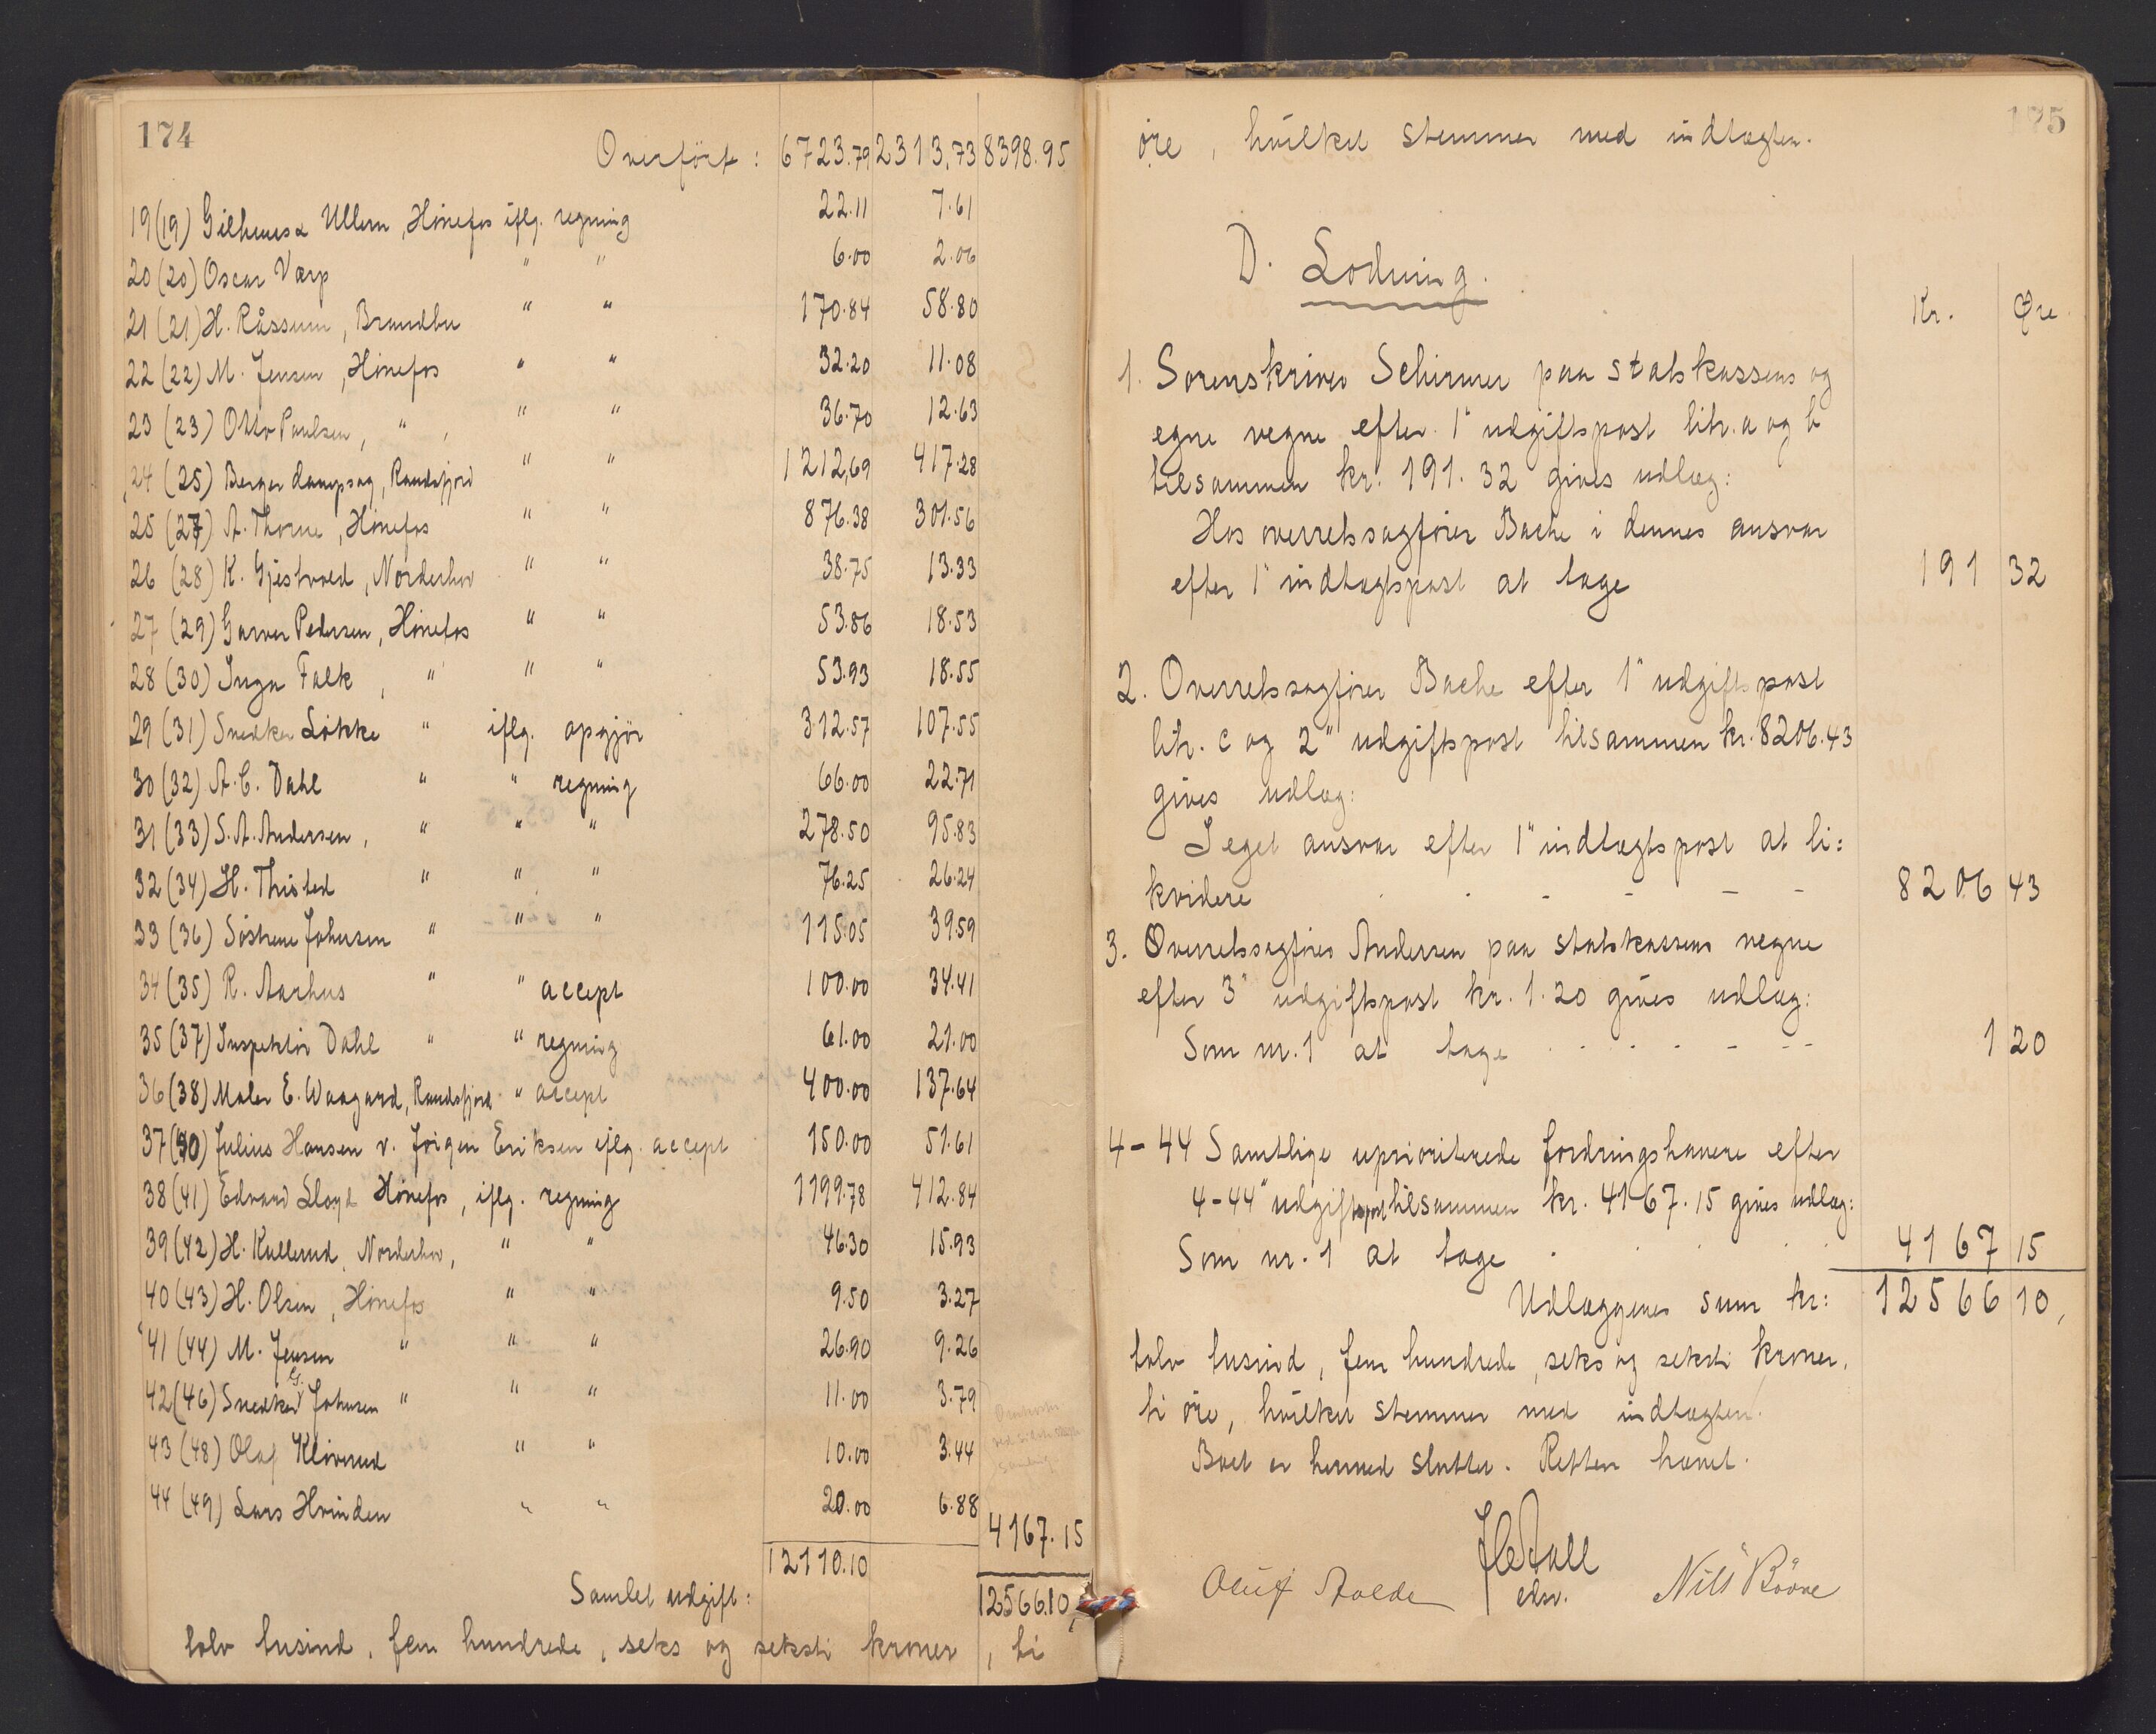 174
Overført : 6723.79 2313.73 8398.95
19 (19) Gilhuus & Ullern, Hønefos iflg. regning 22.11 7.61
20 (20) Oscar Værp " " 6.00 2.06
21 (21) H. Råssum, Brandbu " " 170.84 58.80
22 (22) M. Jensen, Hønefos " " 32.20 11.08
23 (23) Otto Paulsen, " , " " 36.70 12.63
24 (25) Berger dampsag, Randsfjord " " 1212,69 417.28
25 (27) A. Thorne, Hønefos " " 876.38 301.56
26 (28) K. Gjestvold, Norderhov " " 38.75 13.33
27 (29) Garver Pedersen, Hønefos " " 53.86 18.53
28 (30) Inga Falk, " " " 53.93 18.55
29 (31) Snedker Løkke " iflg. opgjør 312.57 107.55
30 (32) A. C. Dahl " " regning 66.00 22.71
31 (33) S. A. Andersen, " " " 278.50 95.83
32 (34) H. Thisted " " " 76.25 26.24
33 (36) Søstrene Johnsen " " " 115.05 39.59
34 (35) R. Aarhus " " accept 100.00 34.41
35 (37) Inspektør Dahl " " regning 61.00 21.00
36 (38) Maler E. Waagard, Randsfjord " accept 400.00 137.64
37 (40) Julius Hansen v. Jørgen Eriksen iflg. accept 150.00 51.61
38 (41) Edvard Lloyd Hønefos, iflg. regning 1199.78 412.84
39 (42) H. Kullerud, Norderhov, " " 46.30 15.93
40 (43) H. Olsen, Hønefos " " 9.50 3.27
41 (44) M. Jensen " " " 26.90 9.26
42 (46) Snedker G. Johnsen " " " 11.00 3.79
43 (48) Olaf Kløverud " " 10.00 3.44
44 (49) Lars Hvinden " " 20.00 6.88
4167.15
12110.10
Samlet udgift: 12566.10,
tolv tusind, fem hundrede, seks og seksti kroner, ti
175
øre, hvilket stemmer med indtægten.
D. Lodning.
Kr. Øre
1. Sorenskriver Schirmer paa statskassens og
egne vegne efter 1" udgiftspost litr. a og b
tilsammen kr. 191.32 gives udlæg:
Hos overretssagfører Bache i dennes ansvar
efter 1" indtægtspost at tage 191 32
2. Overretssagfører Bache efter 1" udgiftspost
litr. c og 2" udgiftspost tilsammen kr. 8206.43
gives udlæg:
I eget ansvar efter 1" indtægtspost at li=
kvidere - - - - 8206 43
3. Overretssagfører Andersen paa statskassens vegne
efter 3" udgiftspost kr. 1.20 gives udlæg:
Som nr. 1 at tage - - - - 1 20
4-44 Samtlige uprioriterede fordringshavere efter
4-44" udgiftspost tilsammen kr. 4167.15 gives udlæg:
Som nr. 1 at tage 4167 15
Udlæggenes sum kr: 12566 10,
tolv tusind, fem hundrede, seks og seksti kroner,
ti øre, hvilket stemmer med indtægten.
Boet er hermed sluttet. Retten hævet.
Oluf Nils